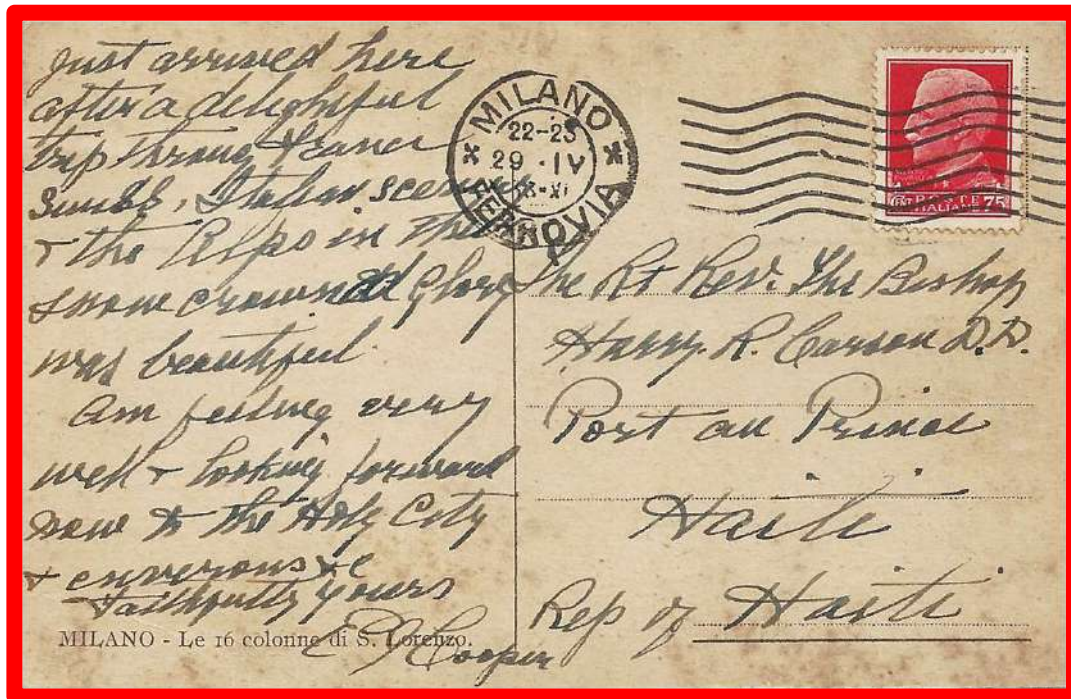 Just arrived here
after a delightful
trip through France
Swiss, Italian scenery
+ the Alps in their
snow crowned glory
was beautiful.
Am feeling very
well + looking forward
now to the Holy City
+ environs &c
Faithfully yours
Cooper
MILANO - Le 16 colonne di S. Lorenzo.
MILANO
22-23
29 · IV
FERROVIA
POSTE
ITALIANE
75
The Rt Rev. The Bishop
Harry R. Carson D.D.
Port au Prince
Haiti
Rep of Haiti